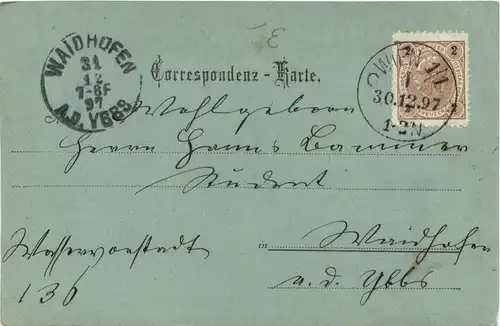 WAIDHOFEN
31
12
7-8F
97
A.D. YBBS
Correspondenz-Karte.
2 2
WIEN
1
30.12.97
1-2N
Wohlgeboren
Herrn Hanns Bammer
Student
Wasservorstadt
136
in Waidhofen
a. d. Ybbs